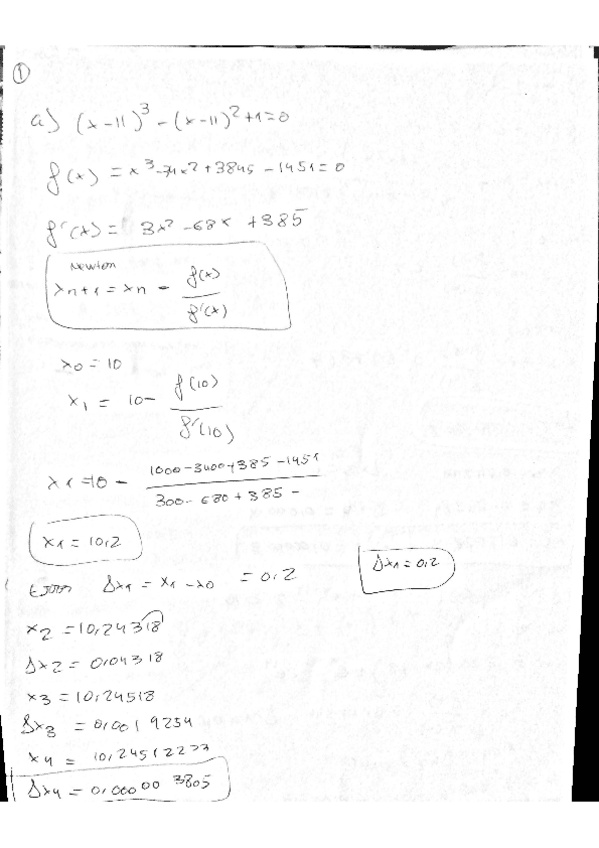 ①
a) (x-11)³ - (x-11)² + 1 = 0
f(x) = x³ - 34x² + 384x - 1451 = 0
f'(x) = 3x² - 68x + 385
Newton
xn+1 = xn - f(x)/f'(x)
x0 = 10
x1 = 10 - f(10)/f'(10)
x1 = 10 - (1000 - 3400 + 385 - 1451)/(300 - 680 + 385 -
x1 = 10,2
Error Δx1 = x1 - x0 = 0,2
Δx1 = 0,2
x2 = 10,24318
Δx2 = 0,04318
x3 = 10,24518
Δx3 = 0,0019254
x4 =
Δx4 = 0,00000 3805